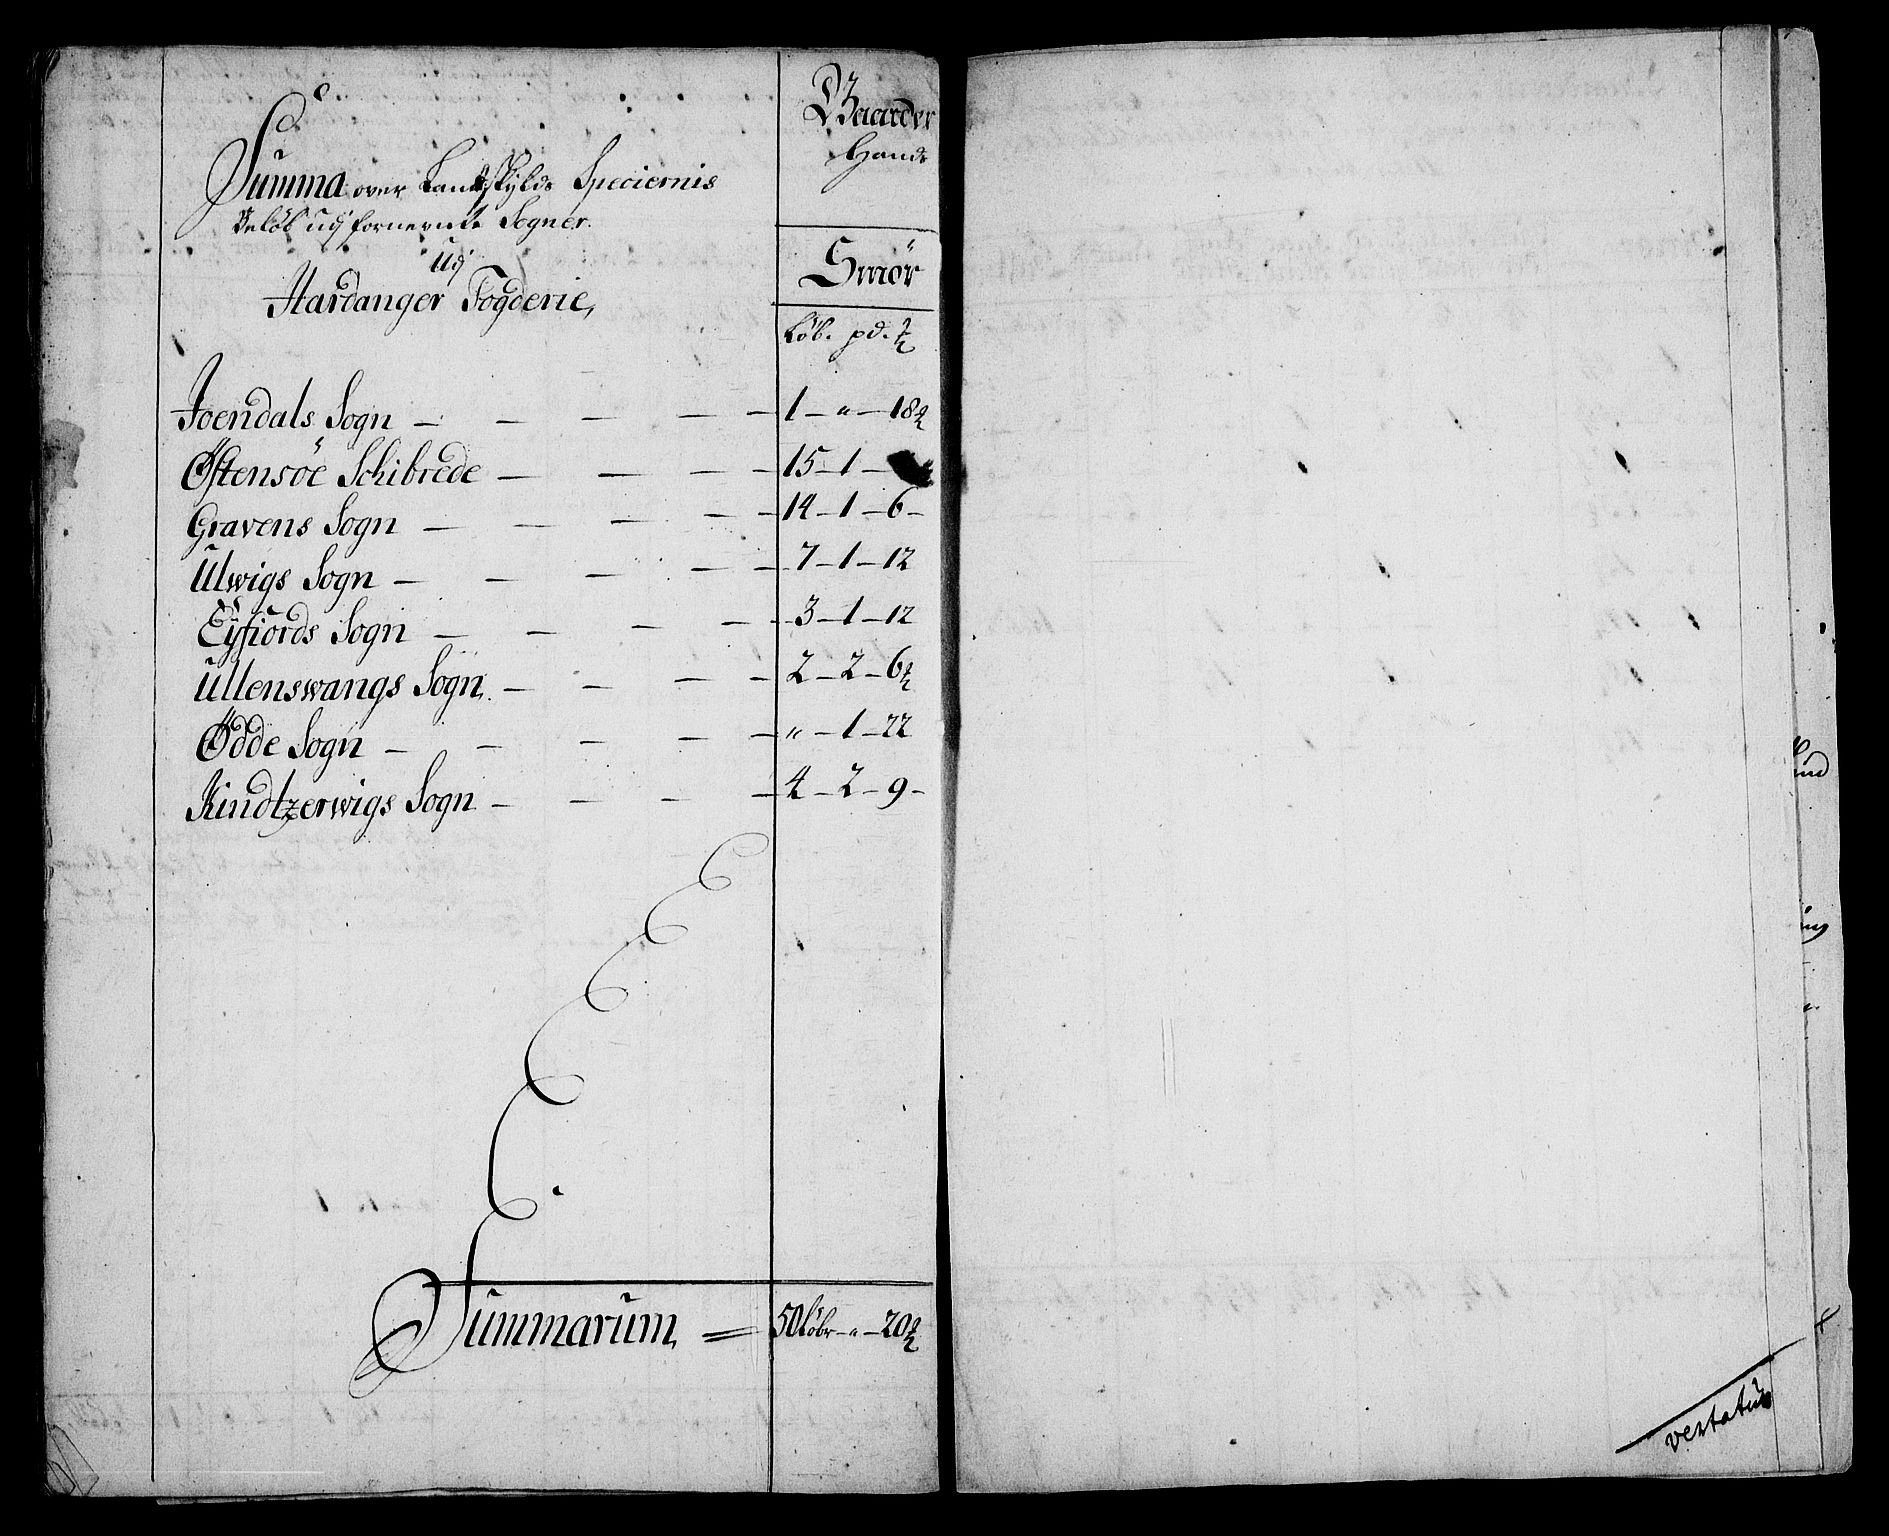 Gaarder
Hands
Summa over Landskylds Speciernis
Beløb udj forneunte Sogner.
Udj
Hardanger Fogderie,
Smör
Löb. pd. ℔
Joendals Sogn — — — — — 1 — " — 18½
Östensöe Schibrede — — — — 15 — 1 —
Gravens Sogn — — — — — 14 — 1 — 6 —
Ulwigs Sogn — — — — — 7 — 1 — 12
Eyfiords Sogn — — — — — 3 — 1 — 12
Ullenswangs Sogn — — — — 2 — 2 — 6½
Odde Sogn — — — — — " — 1 — 22
Kindtzerwigs Sogn — — — — 4 — 2 — 9 —
Summarum, = 50 löbr — " — 20½
vertatur